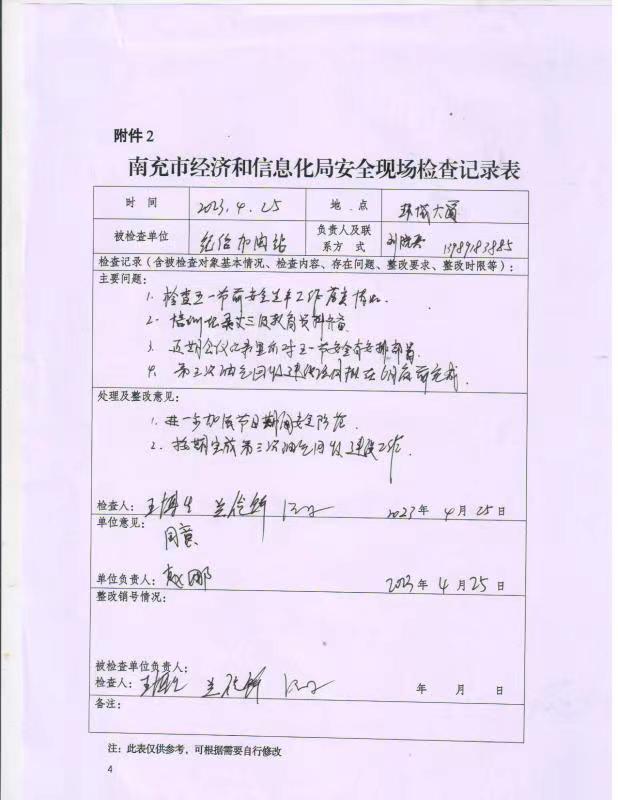 附件 2
南充市经济和信息化局安全现场检查记录表
时 间 2023.4.25 地 . 点 环城大道
被检查单位 加油站 负责人及联系方式 刘 13989183885
检查记录（含被检查对象基本情况、检查内容、存在问题、整改要求、整改时限等）：
主要问题：
1. 检查五一节前安全生产工作落实情况.
2. 培训记录及三级教育资料齐备
3. 近期会议记录显示对五一节安全有安排部署.
4. 第三次油气回收建设拟在6月底前完成.
处理及整改意见：
1. 进一步加强节日期间安全防范.
2. 按期完成第三次油气回收建设工作.
检查人： 2023 年 4 月 25 日
单位意见：
同意
单位负责人：赵娜 2023 年 4 月 25 日
整改销号情况：
被检查单位负责人：
检查人： 年 月 日
备注：
注：此表仅供参考，可根据需要自行修改
4